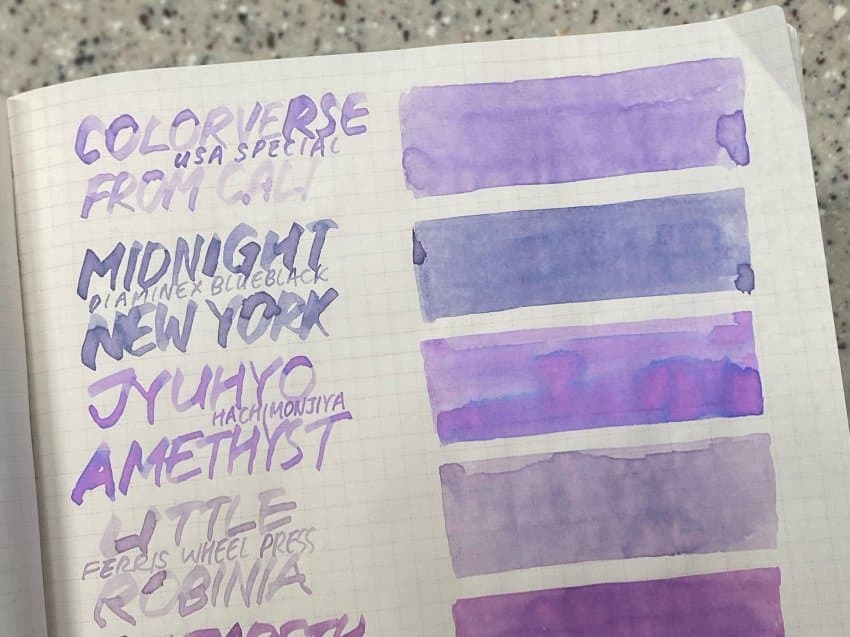 COLORVERSE
USA SPECIAL
FROM CALI
MIDNIGHT
DIAMINE X BLUEBLACK
NEW YORK
JYUHYO
HACHIMONJIYA
AMETHYST
LITTLE
FERRIS WHEEL PRESS
ROBINIA